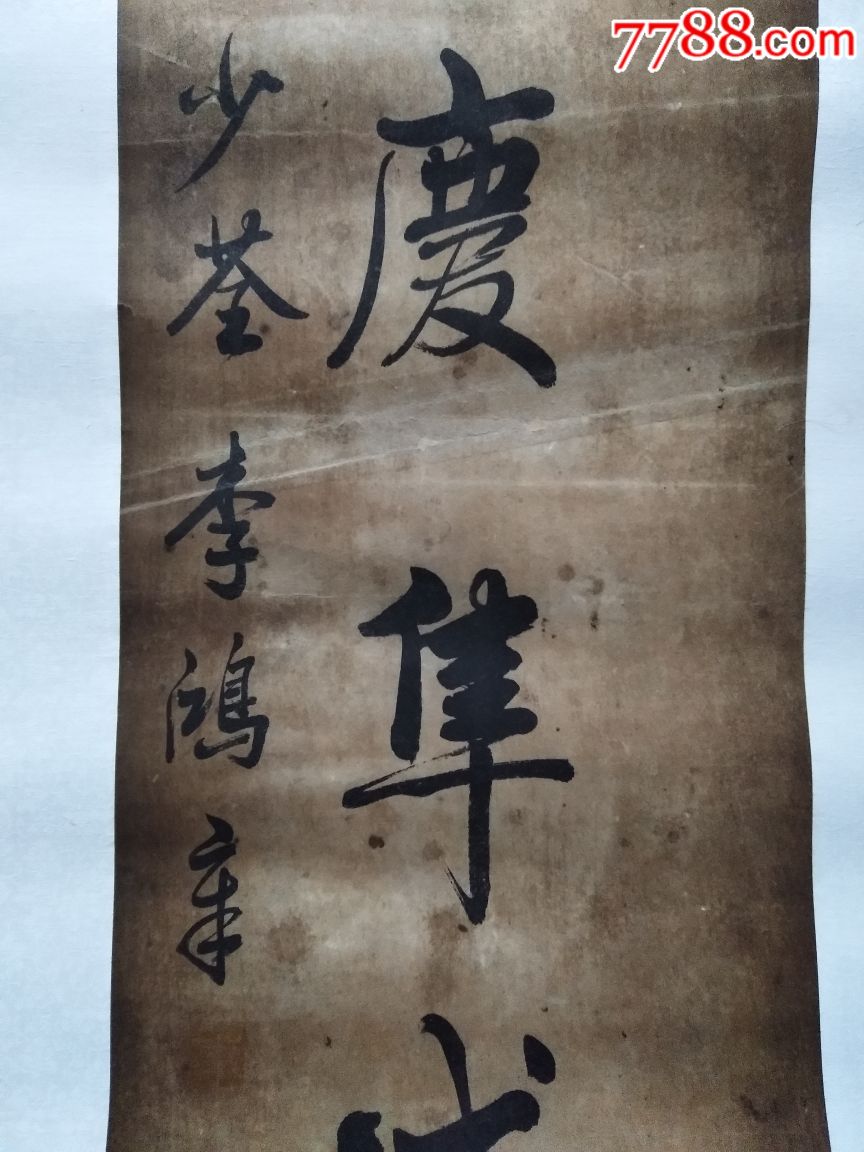 7788.com
慶隼
少荃李鴻章